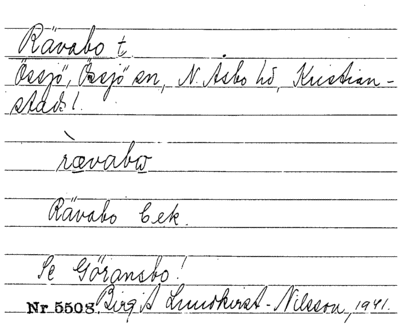 Rävabo t
Össjö, Össjö sn, N. Åsbo hd, Kristian-
stads l.
rævabω
Rävabo bek.
Se Göransbo!
Nr 5508 Birgit Lundkvist-Nilsson, 1941.